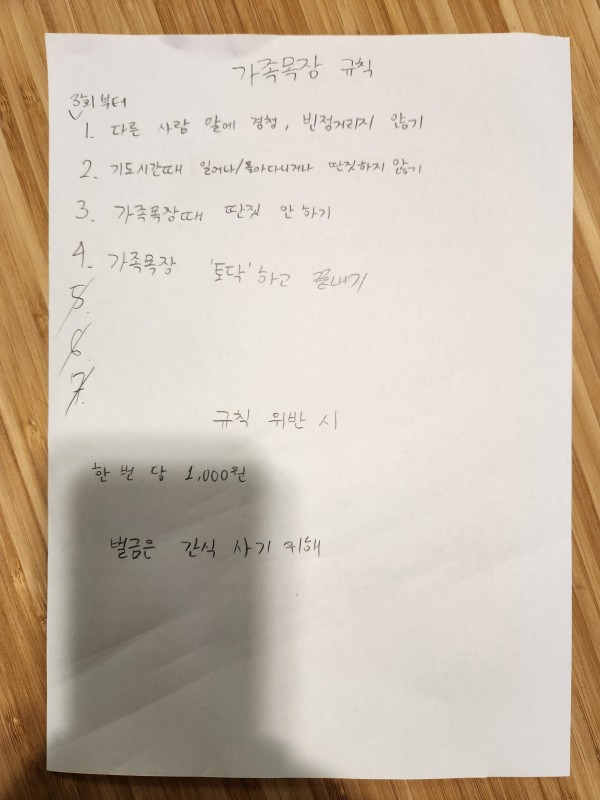 가족목장 규칙
3회부터
1. 다른 사람 말에 경청, 빈정거리지 않기
2. 기도시간때 일어나/돌아다니거나 딴짓하지 않기
3. 가족목장때 딴짓 안하기
4. 가족목장 '토닥'하고 끝내기
5.
6.
7.
규칙 위반 시
한 번 당 1,000원
벌금은 간식 사기 위해